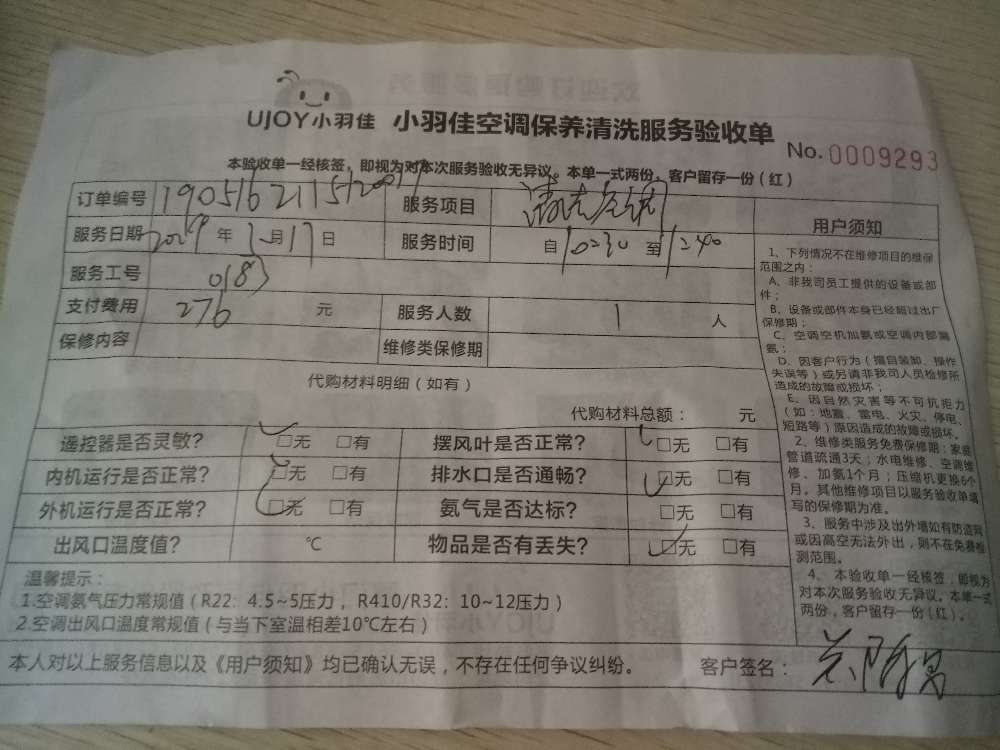 UJOY小羽佳 小羽佳空调保养清洗服务验收单
No.0009293
本验收单一经核签，即视为对本次服务验收无异议。本单一式两份，客户留存一份（红）
订单编号 服务项目
服务日期 2019年 月17日 服务时间 自1030至1240
服务工号 0183
支付费用 276 元 服务人数 1 人
保修内容 维修类保修期
代购材料明细（如有）
代购材料总额： 元
遥控器是否灵敏? □无 □有 摆风叶是否正常? □无 □有
内机运行是否正常? □无 □有 排水口是否通畅? □无 □有
外机运行是否正常? □无 □有 氨气是否达标? □无 □有
出风口温度值? ℃ 物品是否有丢失? □无 □有
温馨提示：
1.空调氨气压力常规值（R22：4.5~5压力，R410/R32：10~12压力）
2.空调出风口温度常规值（与当下室温相差10℃左右）
本人对以上服务信息以及《用户须知》均已确认无误，不存在任何争议纠纷。 客户签名：
用户须知
1、下列情况不在维修项目的维保
范围之内：
A、非我司员工提供的设备或部
件；
B、设备或部件本身已经超过出厂
保修期；
C、空调空机加氨或空调内部漏
氨；
D、因客户行为（擅自装卸、操作
失误等）或另请非我司人员检修所
造成的故障或损坏；
E、因自然灾害等不可抗拒力
（如：地震、雷电、火灾、停电、
短路等）原因造成的故障或损坏。
2、维修类服务免费保修期：家庭
管道疏通3天；水电维修、空调维
修、加氨1个月；压缩机更换6个
月。其他维修项目以服务验收单填
写的保修期为准。
3、服务中涉及出外墙如有防盗网
或因高空无法外出，则不在免费检
测范围。
4、本验收单一经核签，即视为
对本次服务验收无异议。本单一式
两份，客户留存一份（红）。